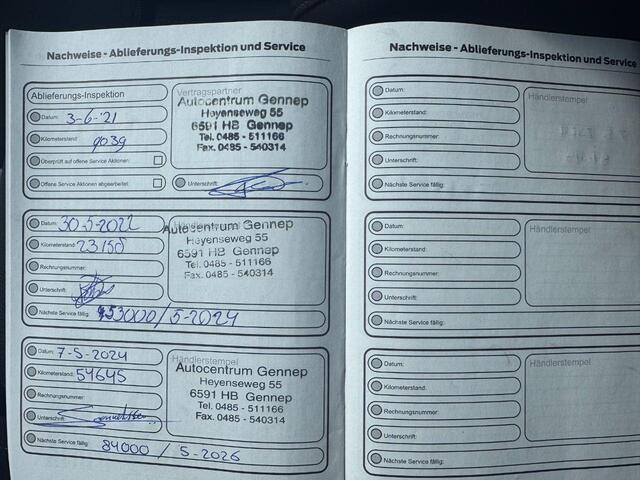 Nachweise - Ablieferungs-Inspektion und Service
Ablieferungs-Inspektion
Datum: 3-6-'21
Kilometerstand: 9039
Überprüft auf offene Service Aktionen:
Offene Service Aktionen abgearbeitet:
Vertragspartner
Autocentrum Gennep
Heyenseweg 55
6591 HB Gennep
Tel. 0485 - 511166
Fax. 0485 - 540314
Unterschrift:
Datum: 30-5-2022
Kilometerstand: 23158
Rechnungsnummer:
Unterschrift:
Nächste Service fällig: 53000 / 5-2024
Händlerstempel
Autocentrum Gennep
Heyenseweg 55
6591 HB Gennep
Tel. 0485 - 511166
Fax. 0485 - 540314
Datum: 7-5-2024
Kilometerstand: 54645
Rechnungsnummer:
Unterschrift:
Nächste Service fällig: 84000 / 5-2026
Händlerstempel
Autocentrum Gennep
Heyenseweg 55
6591 HB Gennep
Tel. 0485 - 511166
Fax. 0485 - 540314
Nachweise - Ablieferungs-Inspektion und Service
Datum:
Kilometerstand:
Rechnungsnummer:
Unterschrift:
Nächste Service fällig:
Händlerstempel
Datum:
Kilometerstand:
Rechnungsnummer:
Unterschrift:
Nächste Service fällig:
Händlerstempel
Datum:
Kilometerstand:
Rechnungsnummer:
Unterschrift:
Nächste Service fällig:
Händlerstempel